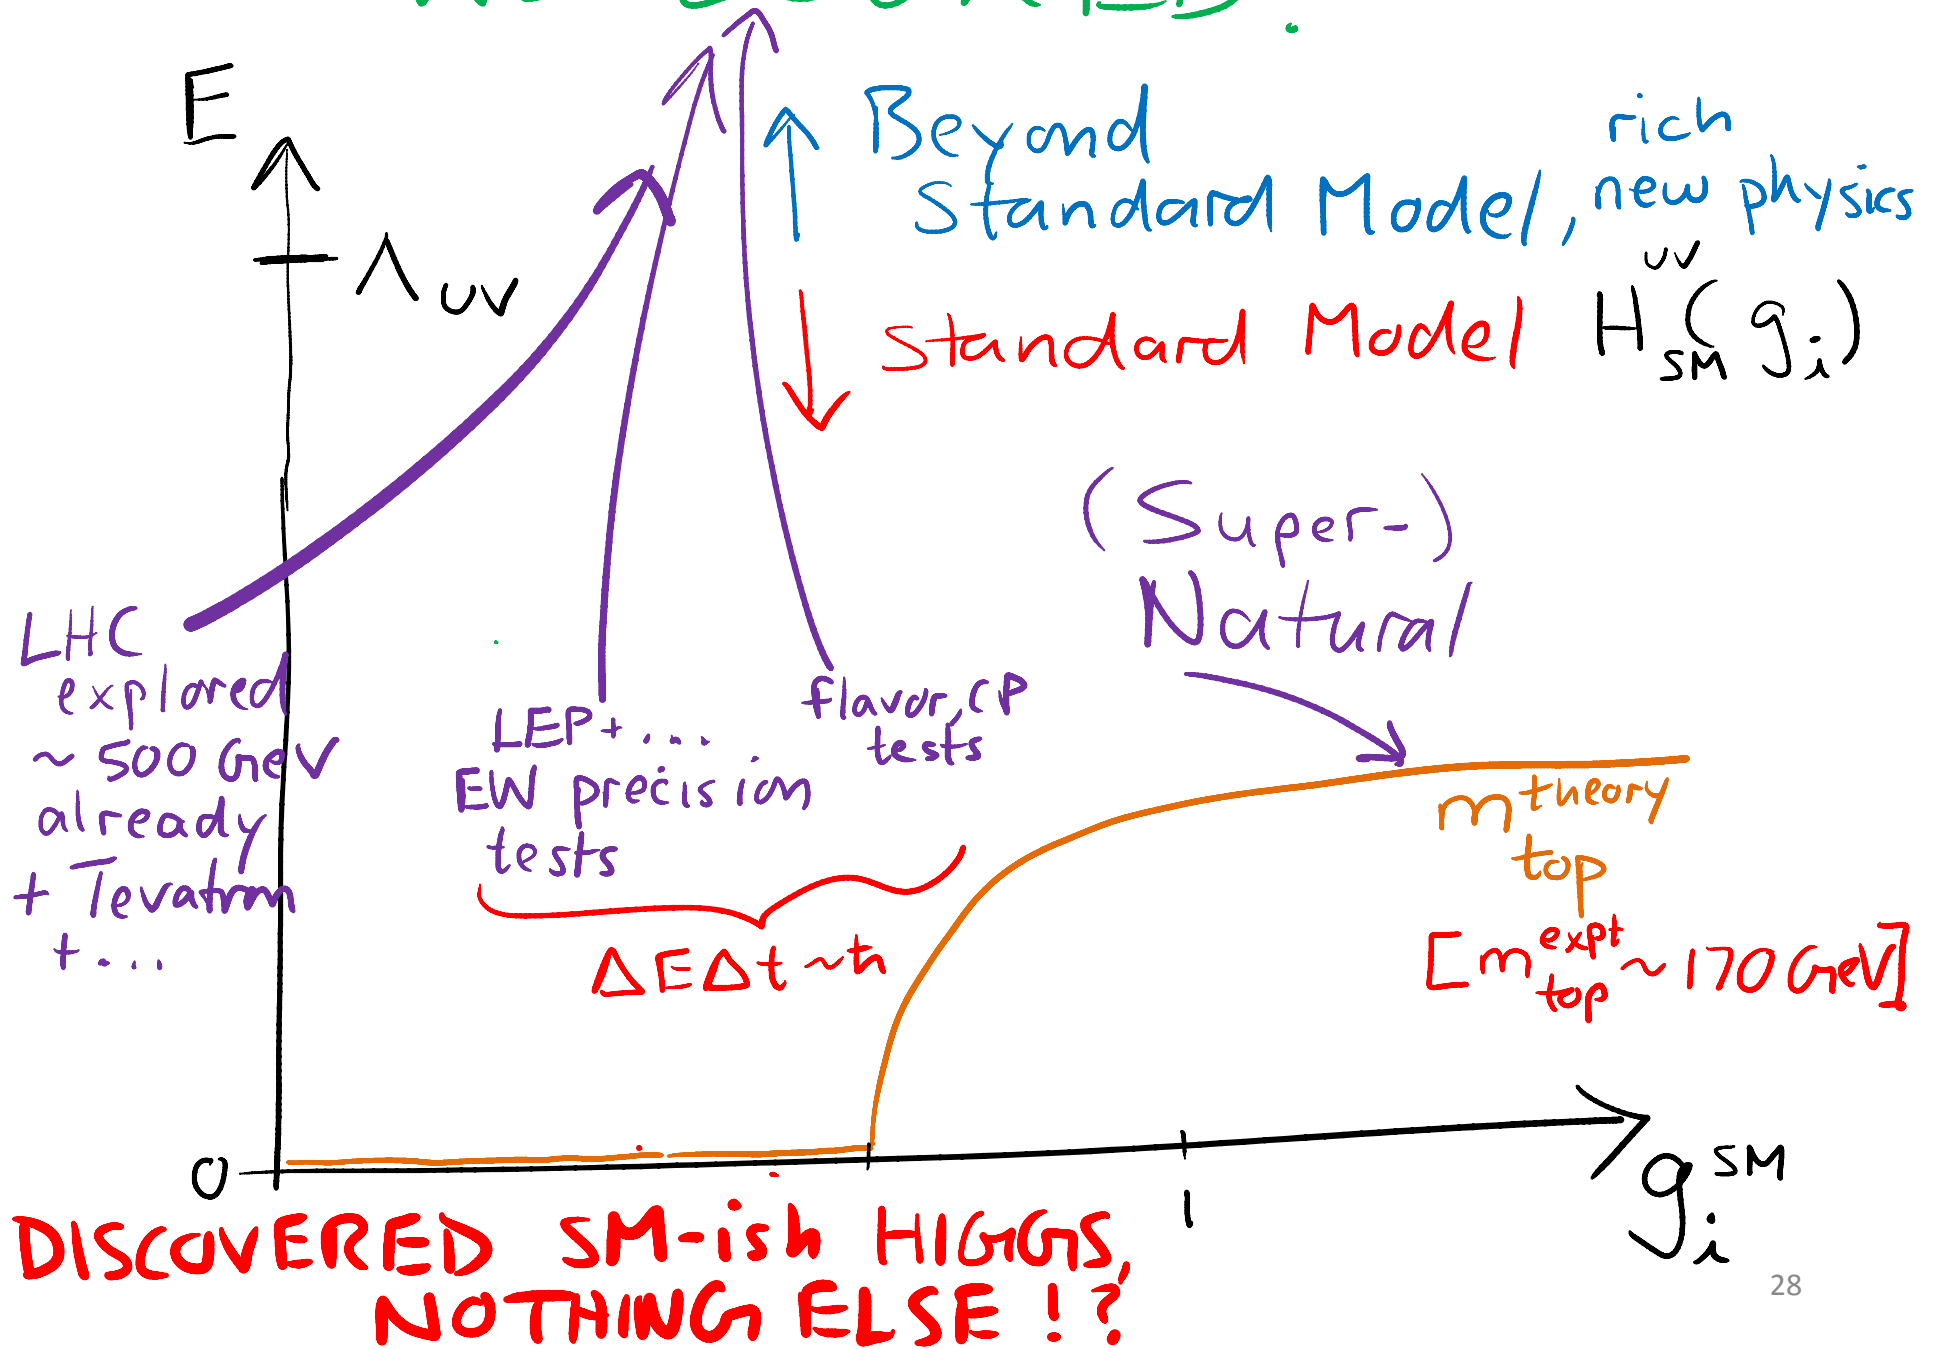 E
Λ UV
Beyond
Standard Model,
rich
new physics
Standard Model
H^UV_SM(g_i)
(Super-)
Natural
LHC
explored
~ 500 GeV
already
+ Tevatron
+ ...
LEP + ...
EW precision
tests
flavor, CP
tests
ΔEΔt ~ ħ
m^theory_top
[m^expt_top ~ 170 GeV]
0
1
g_i^SM
DISCOVERED SM-ish HIGGS,
NOTHING ELSE !?
28